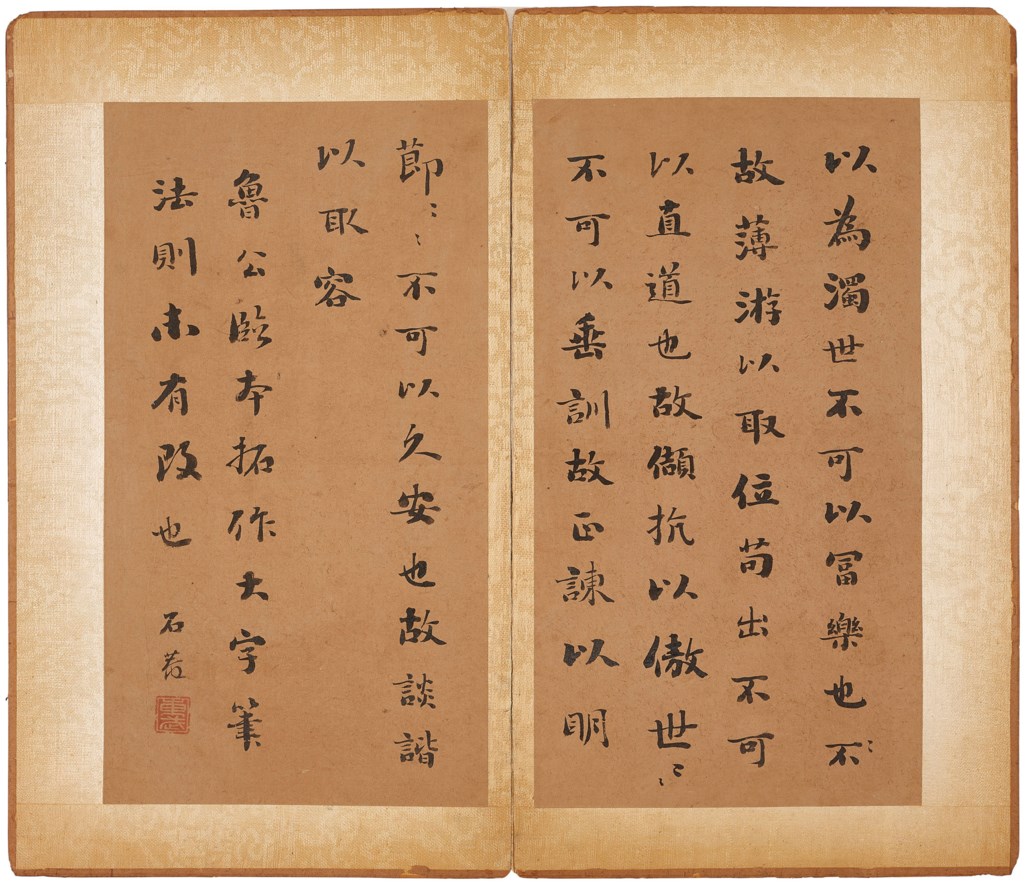 以為濁世不可以冨樂也不〻
故薄游以取位苟出不可
以直道也故抗以傲世〻〻
不可以垂訓故正諫以明
節〻〻不可以久安也故談諧
以取容
魯公臨本拓作大字筆
法則未有改也
石菴